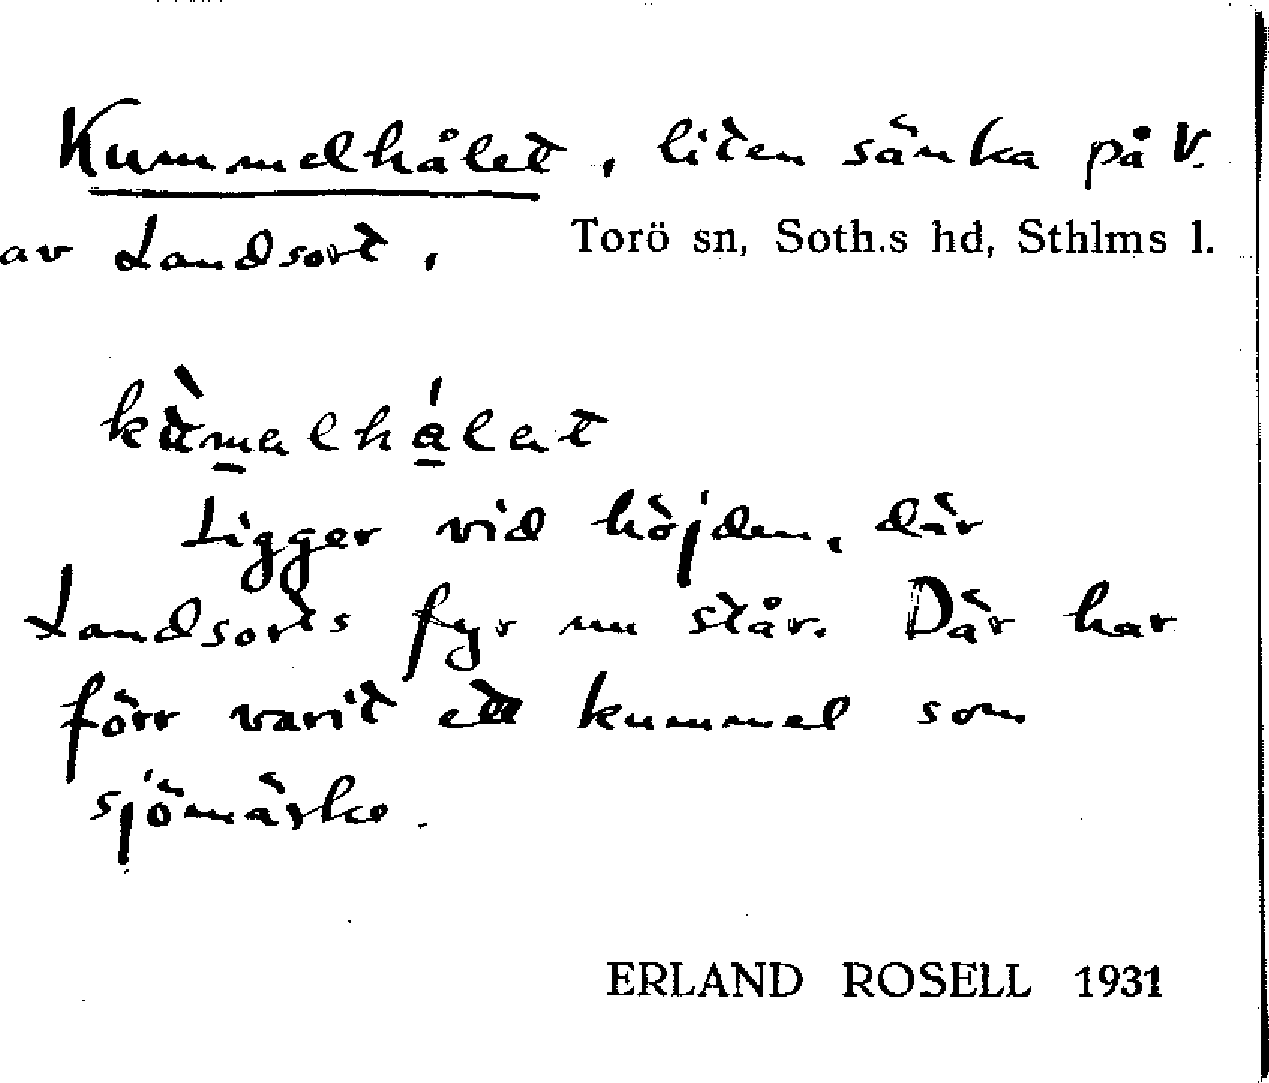 Kummelhålet, liten sänka på V.
av Landsort, Torö sn, Soth.s hd, Sthlms l.
Ligger vid höjden, där
Landsorts fyr nu står. Där har
förr varit ett kummel som
sjömärke.
ERLAND ROSELL 1931